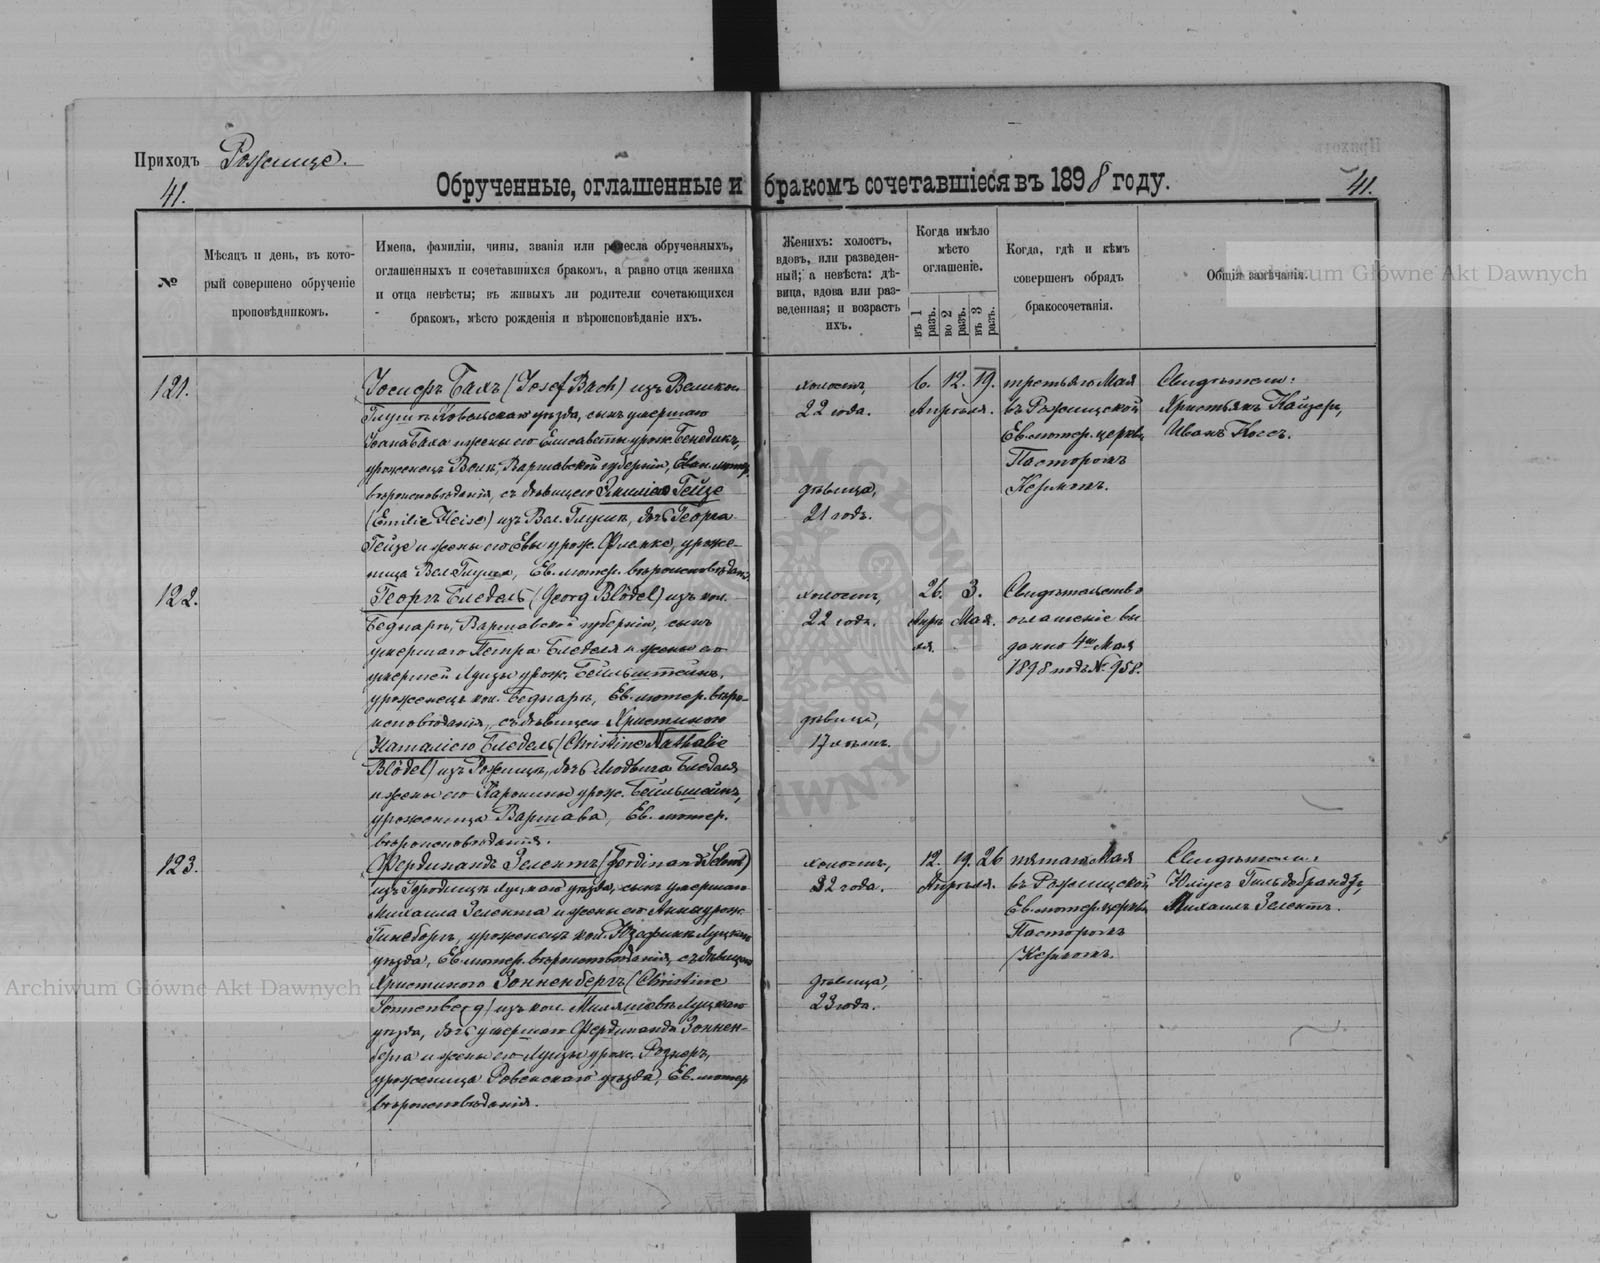 Приходъ Рожище.
41.
Обрученные, оглашенные и бракомъ сочетавшіеся въ 1898 году.
41.
№
Мѣсяцъ и день, въ кото-
рый совершено обрученіе
проповѣдникомъ.
Имена, фамиліи, чины, званія или ремесла обрученныхъ,
оглашенныхъ и сочетавшихся бракомъ, а равно отца жениха
и отца невѣсты; въ живыхъ ли родители сочетающихся
бракомъ, мѣсто рожденія и вѣроисповѣданіе ихъ.
Женихъ: холостъ,
вдовъ, или разведен-
ный; а невѣста: дѣ-
вица, вдова или раз-
веденная; и возрастъ
ихъ.
Когда имѣло
мѣсто
оглашеніе.
въ 1 разъ.
во 2 разъ.
въ 3 разъ.
Когда, гдѣ и кѣмъ
совершенъ обрядъ
бракосочетанія.
Общія замѣчанія.
121.
Іосифъ Бахъ (Josef Bach) изъ Велико-
Глушъ Ковельскаго уѣзда, сынъ умершаго
Іоана Баха и жены его Елисаветы урож. Бенедикъ,
уроженецъ Варшавской губерніи, Еван. лютер.
вѣроисповѣданія, съ дѣвицею Эмиліею Гейзе
(Emilie Heise) изъ Вел. Глуши, дочь Георга
Гейзе и жены его Евы урож. Фленке, уроже-
ница Вел. Глуша, Ев. лютер. вѣроисповѣданія
холостъ,
22 года.
дѣвица,
21 годъ.
6. 12. 19.
Апрѣля.
третьяго Мая
въ Рожищской
Ев. лютер. церкви
Пасторомъ
Керномъ.
Свидѣтели:
Христьянъ Кайзеръ,
Иванъ Кассъ.
122.
Георгъ Бледель (Georg Blödel) изъ кол.
Беднары, Варшавской губерніи, сынъ
умершаго Петра Бледеля и жены его
умершей Луизы урож. Бейльштейнъ,
уроженецъ кол. Беднары, Ев. лютер. вѣро-
исповѣданія, съ дѣвицею Христиною
Наталіею Бледель (Christine Nathalie
Blödel) изъ Рожищъ, дочь Людвига Бледеля
и жены его Каролины урож. Бейльшейнъ,
уроженица Варшава, Ев. лютер.
вѣроисповѣданія.
холостъ,
22 года.
дѣвица,
17 лѣтъ.
26. 3.
Апрѣ Мая.
ля.
Свидѣтельство
оглашеніе вы
дано 4го Мая
1898 года № 958.
123.
Фердинандъ Зелентъ (Ferdinand Selent)
изъ Городищъ Луцкаго уѣзда, сынъ умершаго
Михаила Зелента и жены его Анны урож.
Гинсборгъ, уроженецъ кол. Юзефинъ Луцкаго
уѣзда, Ев. лютер. вѣроисповѣданія, съ дѣвицею
Христиною Зонненбергъ (Christine
Sonnenberg) изъ кол. Миляшовъ Луцкаго
уѣзда, дочь умершаго Фердинанда Зоннен-
берга и жены его Луизы урож. Рознеръ,
уроженица Ровенскаго уѣзда, Ев. лютер
вѣроисповѣданія.
холостъ,
32 года.
дѣвица,
23 года.
12. 19. 26
Апрѣля.
пятаго Мая
въ Рожищской
Ев. лютер. церкви
Пасторомъ
Керномъ.
Свидѣтели:
Юліусъ Гильдебрандъ,
Михаилъ Зелентъ.
Archiwum Główne Akt Dawnych
Archiwum Główne Akt Dawnych